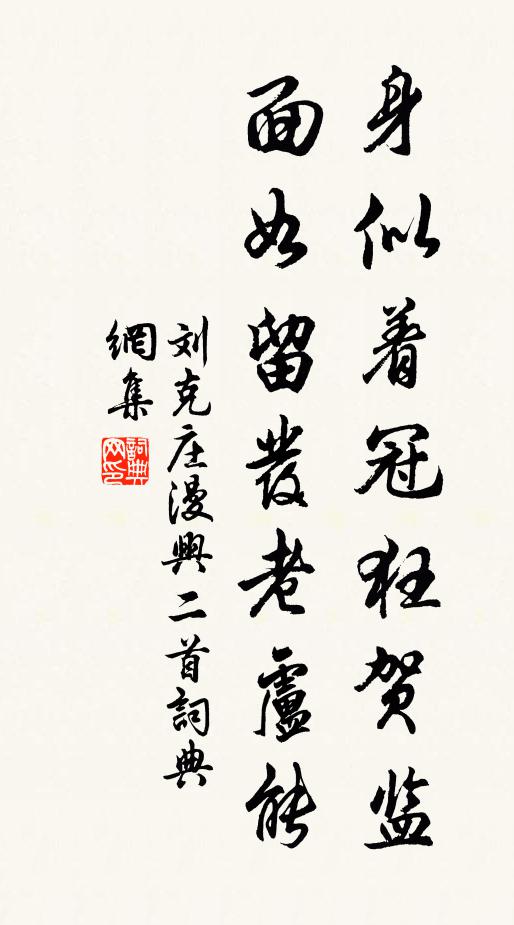 身似着冠狂贺监
面如留發老盧能
刘克庄漫興二首詞典
網集
詞典网印